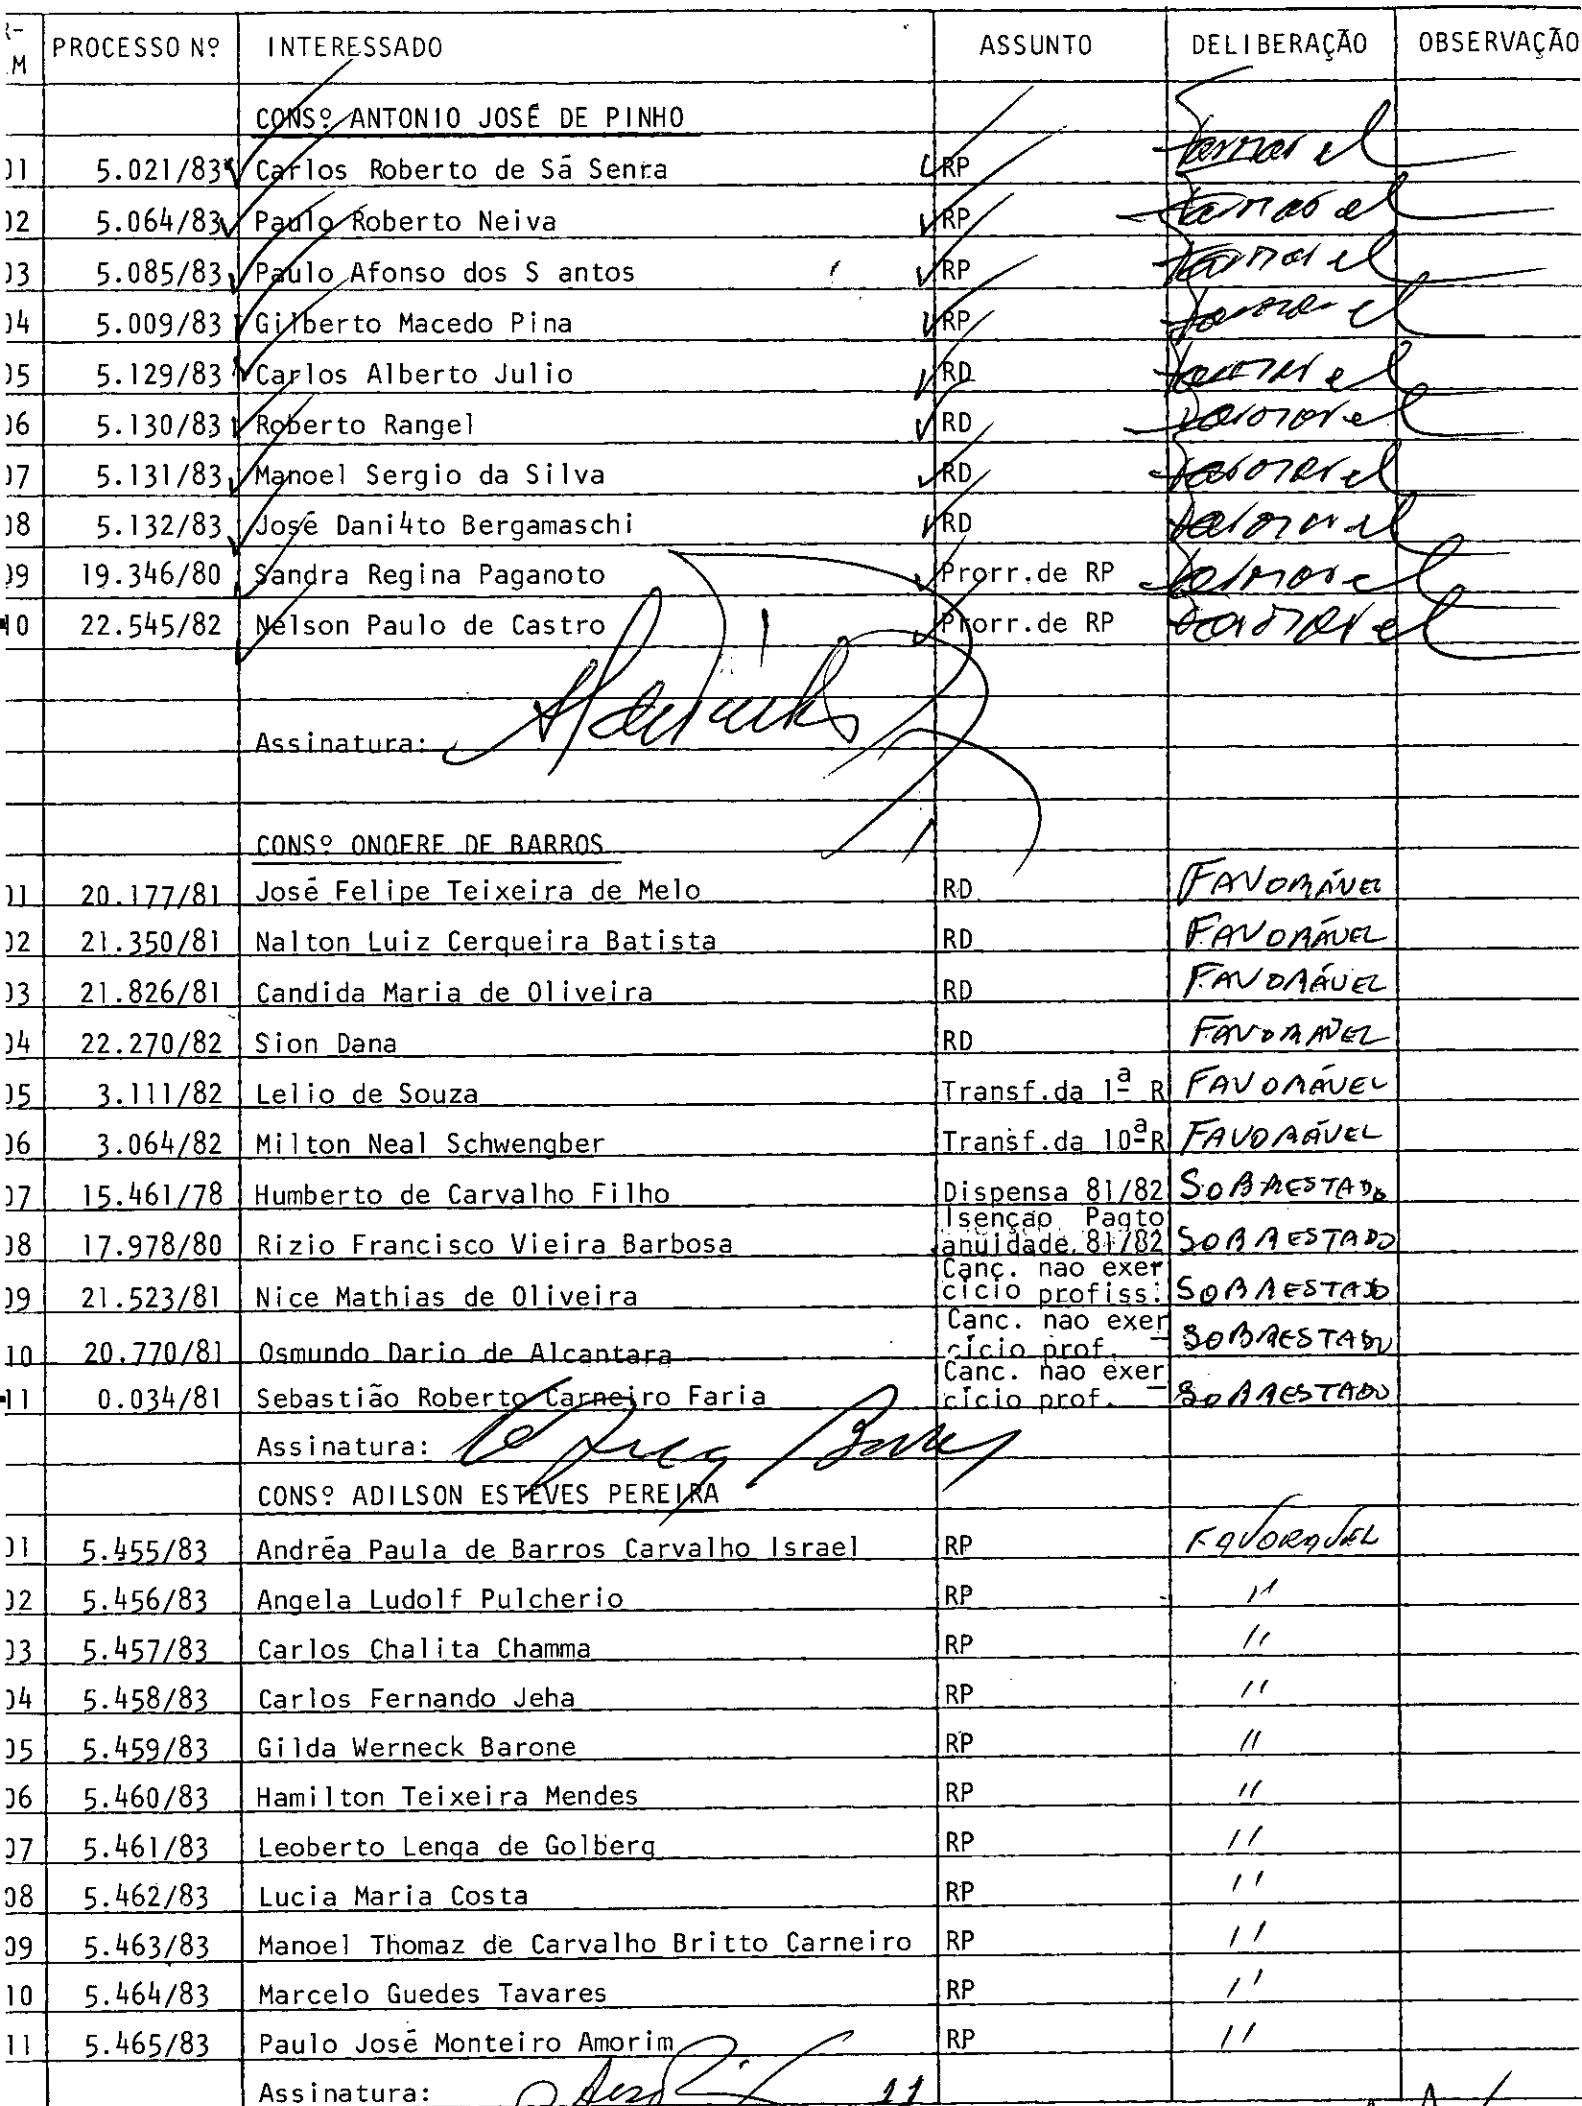 PROCESSO Nº INTERESSADO ASSUNTO DELIBERAÇÃO OBSERVAÇÃO
M
CONSº ANTONIO JOSÉ DE PINHO
01 5.021/83 Carlos Roberto de Sá Senra RP favoravel
02 5.064/83 Paulo Roberto Neiva RP favoravel
03 5.085/83 Paulo Afonso dos S antos RP favoravel
04 5.009/83 Gilberto Macedo Pina RP favoravel
05 5.129/83 Carlos Alberto Julio RD favoravel
06 5.130/83 Roberto Rangel RD favoravel
07 5.131/83 Manoel Sergio da Silva RD favoravel
08 5.132/83 José Dani4to Bergamaschi RD favoravel
09 19.346/80 Sandra Regina Paganoto Prorr.de RP favoravel
10 22.545/82 Nelson Paulo de Castro Prorr.de RP favoravel
Assinatura:
CONSº ONOFRE DE BARROS
01 20.177/81 José Felipe Teixeira de Melo RD FAVORÁVEL
02 21.350/81 Nalton Luiz Cerqueira Batista RD FAVORÁVEL
03 21.826/81 Candida Maria de Oliveira RD FAVORÁVEL
04 22.270/82 Sion Dana RD FAVORÁVEL
05 3.111/82 Lelio de Souza Transf.da 1ª R FAVORÁVEL
06 3.064/82 Milton Neal Schwengber Transf.da 10ªR FAVORÁVEL
07 15.461/78 Humberto de Carvalho Filho Dispensa 81/82 SOBRESTADO
08 17.978/80 Rizio Francisco Vieira Barbosa Isenção Pagto anuidade 81/82 SOBRESTADO
09 21.523/81 Nice Mathias de Oliveira Canc. nao exer cício profiss. SOBRESTADO
10 20.770/81 Osmundo Dario de Alcantara Canc. nao exer cício prof. SOBRESTADO
11 0.034/81 Sebastião Roberto Carneiro Faria Canc. nao exer cício prof. SOBRESTADO
Assinatura:
CONSº ADILSON ESTEVES PEREIRA
01 5.455/83 Andréa Paula de Barros Carvalho Israel RP FAVORAVEL
02 5.456/83 Angela Ludolf Pulcherio RP "
03 5.457/83 Carlos Chalita Chamma RP "
04 5.458/83 Carlos Fernando Jeha RP "
05 5.459/83 Gilda Werneck Barone RP "
06 5.460/83 Hamilton Teixeira Mendes RP "
07 5.461/83 Leoberto Lenga de Golberg RP "
08 5.462/83 Lucia Maria Costa RP "
09 5.463/83 Manoel Thomaz de Carvalho Britto Carneiro RP "
10 5.464/83 Marcelo Guedes Tavares RP "
11 5.465/83 Paulo José Monteiro Amorim RP "
Assinatura: 11